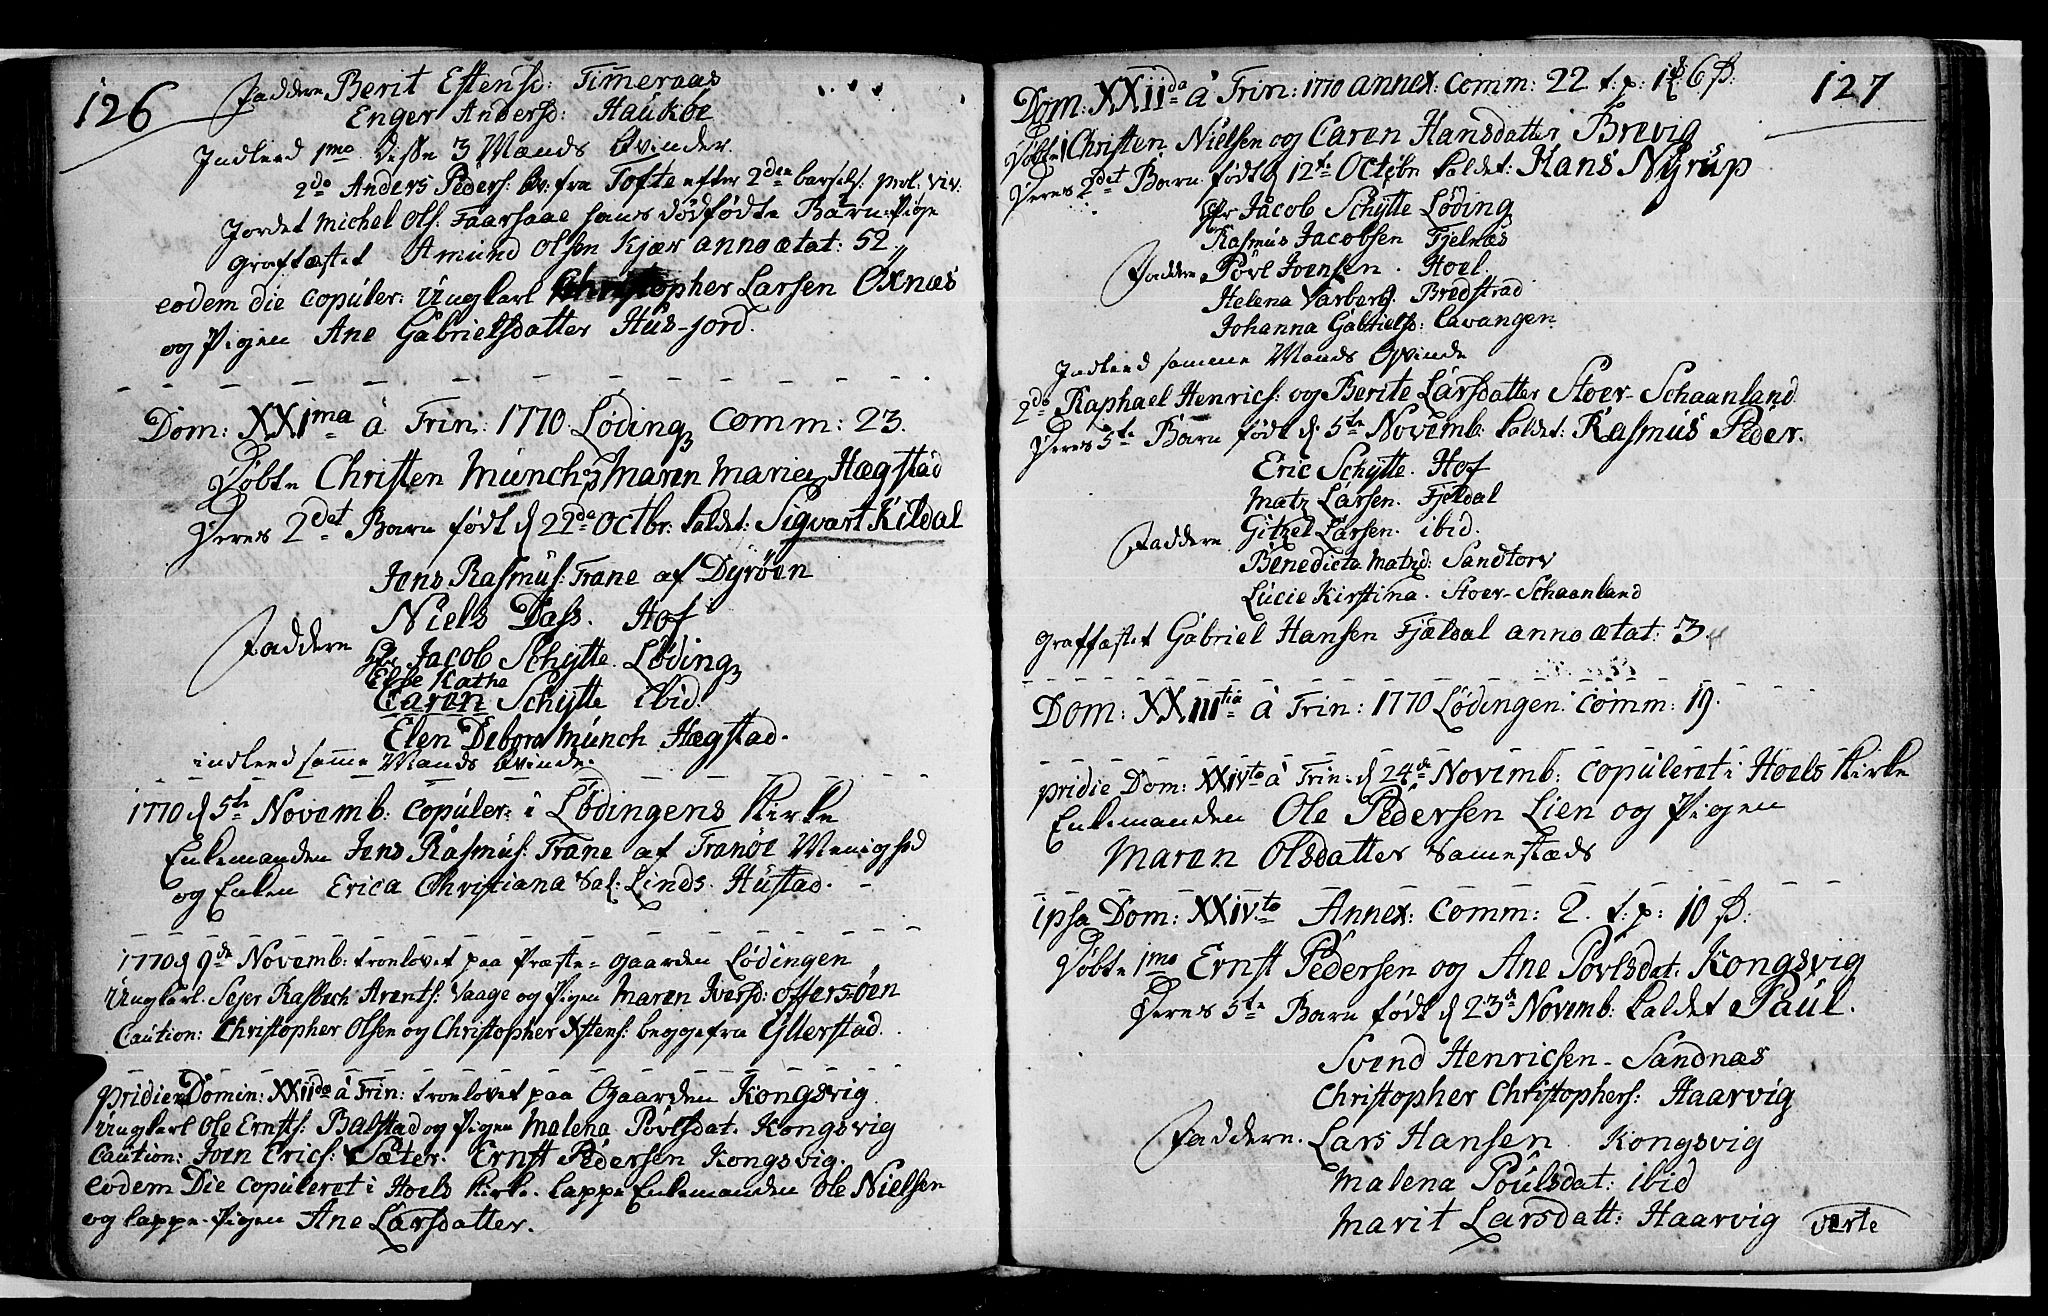 126
Faddere Berit Estensd: Timeraas
Enger Andersd: Haukøe
Indleed 1mo Desse 3 Mands Qvinder.
2do Anders Peders: Qv: fra Tofte efter 2den barsels:
Jordet Michel Ols. Faarsaae hans dødfødte Barn: Pige
Graffæstet Amund Olsen Kjær anno ætat: 52
eodem die copuler: Ungkarl Christopher Larsen Øxnæs
og Pigen Ane Gabrielsdatter Hus-jord.
Dom: XXIma à Trin: 1770 Løding Comm: 23.
Døbte Christen Münch og Maren Marie Hægstad
Deres 2det Barn født d 22de Octbr. kaldet: Sigvart Kildal
Jens Rasmus: Trane af Dyrøen
Niels Dass. Hof
Faddere
Hr Jacob Schytte. Løding
Else Kathe
Caren Schytte ibid.
Elen Debora Münch Hægstad.
indleed samme Mands Qvinde.
1770 d 5te Novemb: copuler: i Lødingens Kirke
Enkemanden Jens Rasmus: Trane af Tranøe Menighed
og Enken Erica Christiana Sal: Linds. Hustad.
1770 d 9de Novemb: trolovet paa Præste-gaarden Lødingen
Ungkarl. Sejer Rasbech Arents: Vaage og Pigen Maren Iversd: Offersøen
Caution: Christopher Olsen og Christopher Østens: begge fra Ylterstad.
pridie Domin: XXIIda à Trin: trolovet paa Gaarden Kongsvig
Ungkarl Ole Ernsts: Balstad og Pigen Malena Povlsdat. Kongsvig
Caution: Joen Erics: Sæter. Ernst Pedersen Kongsvig.
eodem Die copuleret i Hoels Kirke. lappe Enkemanden Ole Nielsen
og lappe-Pigen Ane Larsdatter.
127
Dom: XXIIda à Trin: 1770 annex: Comm: 22 t:p: 6 ß:
Døbte Christen Nielsen og Caren Hansdatter Brevig
Deres 2det Barn født d 12te Octobr kaldet: Hans Nyrup
Hr Jacob Schytte Løding
Rasmus Jacobsen Fjelnæs
Faddere Povl Joensen. Hoel.
Helena Varberg. Bredstrad
Johanna Gabrielsd: Lavangen
Indleed samme Mands Qvinde
2do Raphael Henrics: og Berite Larsdatter Stoer-Schaanland
Deres 5te Barn født d. 5te Novemb: kaldet: Rasmus Peder.
Eric Schytte. Hof
Matz Larsen. Fjeldal
Faddere Gitzel Larsen. ibid.
Benedicta Matzd: Sandtorv
Lucie Kirstina. Stoer-Schaanland
Graffæstet Gabriel Hansen Fjældal anno ætat: 3
Dom: XXIIItia à Trin: 1770 Lødingen: Comm: 19.
pridie Dom: XXIVta à Trin: d 24de Novemb: copuleret i Hoels Kirke
Enkemanden Ole Pedersen Lien og Pigen
Maren Olsdatter Samestæds
ipsa Dom: XXIVta Annex: Comm: 2. t:p: 10 ß:
Døbte 1mo Ernst Pedersen og Ane Povlsdat: Kongsvig
Deres 5te Barn født d 23de Novemb: kaldet Paul.
Svend Henricsen. Sandnæs
Christopher Christophers: Haarvig
Faddere. Lars Hansen Kongsvig
Malena Poulsdat: ibid
Marit Larsdatt: Haarvig verte